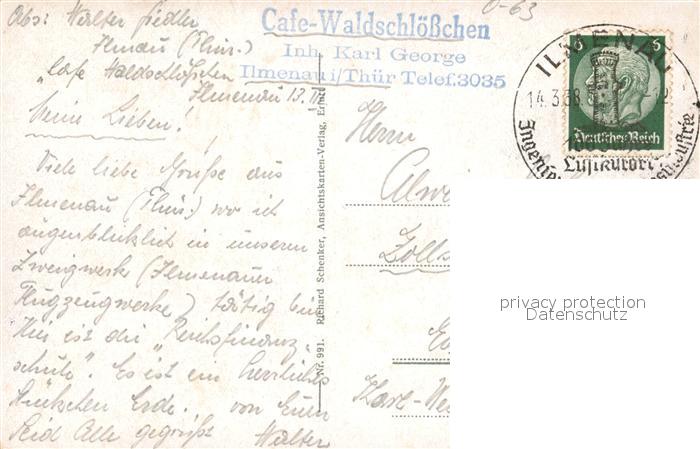 Abs: Walter Siedler
Ilmenau (Thür.)
"Cafe Waldschlößchen
Ilmenau 13. III.
Cafe-Waldschlößchen
Inh. Karl George
Ilmenau i/Thür Telef.3035
0-63
ILMENAU
14.3.38. 12.
Luftkurort
6 6
Deutsches Reich
Meine Lieben!
Viele liebe Grüße aus
Ilmenau (Thür.) wo ich
augenblicklich in unserem
Zweigwerk (Ilmenauer
Flugzeugwerke) tätig bin
Hier ist die "Reichsfinanz-
schule". Es ist ein herrliches
Stückchen Erde. von Euer
Seid Alle gegrüßt Walter
Nr. 991. Richard Schenker, Ansichtskarten-Verlag, Erfurt
Herrn
Zolls
Karl-We
privacy protection
Datenschutz